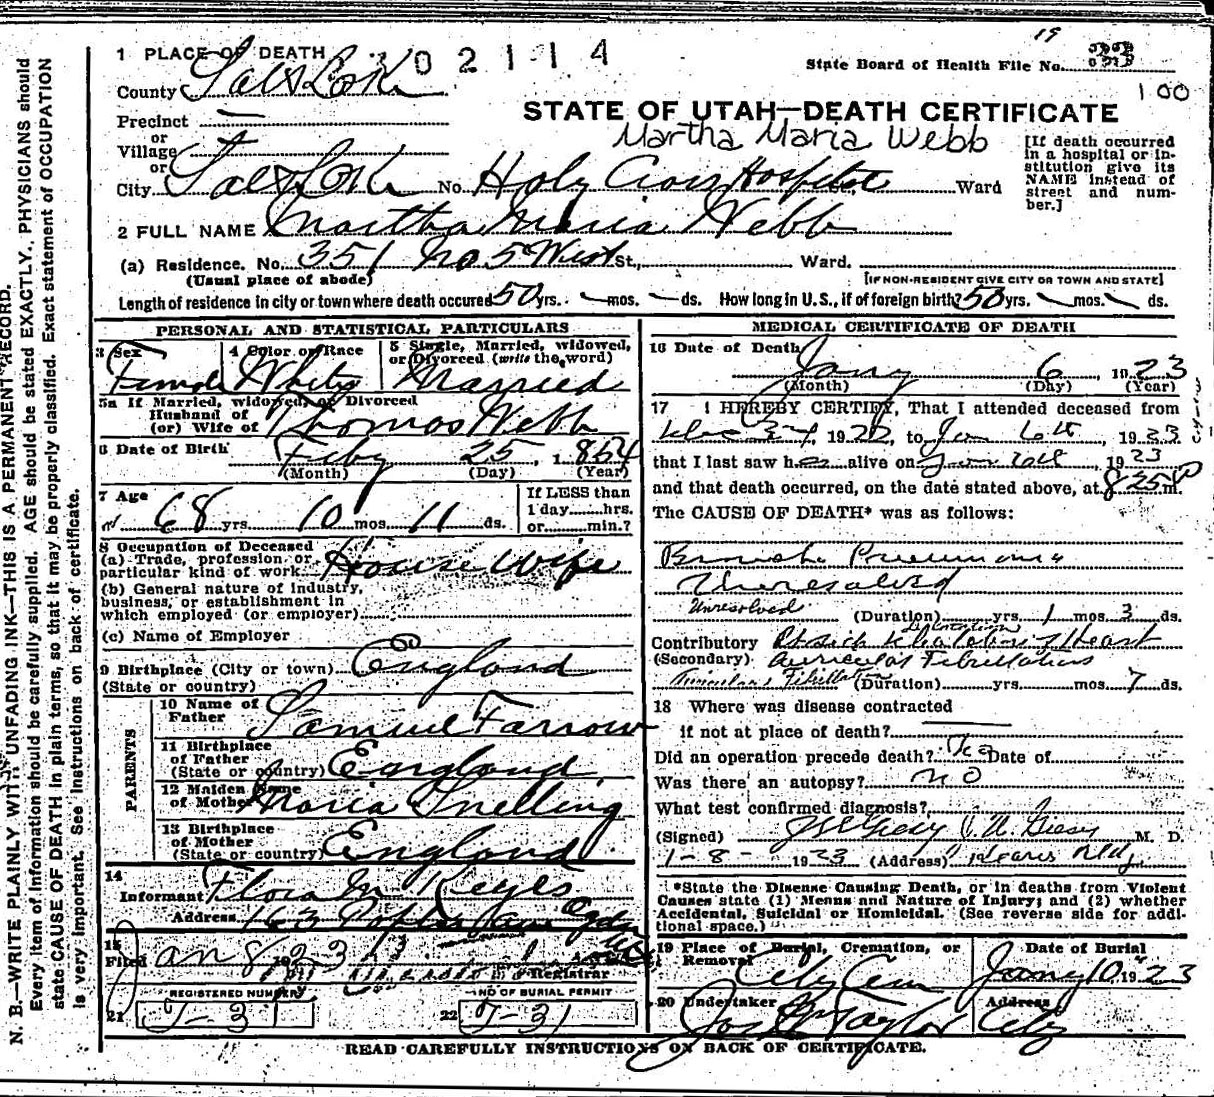 1 PLACE OF DEATH 302114
State Board of Health File No. 19 33
100
County Salt Lake
STATE OF UTAH—DEATH CERTIFICATE
Precinct —
Martha Maria Webb
or
Village
or
City Salt Lake No. Holy Cross Hospital Ward
[If death occurred
in a hospital or in-
stitution give its
NAME instead of
street and num-
ber.]
2 FULL NAME Martha Maria Webb
(a) Residence. No. 351 No 5 West St., Ward.
(Usual place of abode)
[IF NON-RESIDENT GIVE CITY OR TOWN AND STATE]
Length of residence in city or town where death occured 50 yrs. — mos. — ds. How long in U.S., if of foreign birth? 50 yrs. — mos. — ds.
PERSONAL AND STATISTICAL PARTICULARS
3 Sex Female
4 Color or Race White
5 Single, Married, widowed, or Divorced (write the word) Married
5a If Married, widowed, or Divorced
Husband of
(or) Wife of Thomas Webb
6 Date of Birth Feby 25, 1854
(Month) (Day) (Year)
7 Age 68 yrs. 10 mos. 11 ds.
If LESS than
1 day......hrs.
or......min.?
8 Occupation of Deceased
(a) Trade, profession or
particular kind of work House Wife
(b) General nature of industry,
business, or establishment in
which employed (or employer)
(c) Name of Employer
9 Birthplace (City or town) England
(State or country)
PARENTS
10 Name of
Father Samuel Farrow
11 Birthplace
of Father
(State or country) England
12 Maiden Name
of Mother Maria Snelling
13 Birthplace
of Mother
(State or country) England
14
Informant Flora M Keyes
Address 163 Poplar Ave Ogden
15
Filed Jan 8 1923
Registrar
REGISTERED NUMBER
21 J-31
NO OF BURIAL PERMIT
22 J-31
MEDICAL CERTIFICATE OF DEATH
16 Date of Death Jany 6 1923
(Month) (Day) (Year)
17 I HEREBY CERTIFY, That I attended deceased from
1922, to Jan 6th, 1923
that I last saw her alive on Jan 6th, 1923
and that death occurred, on the date stated above, at 825 P m.
The CAUSE OF DEATH* was as follows:
Broncho Pneumonia
Unresolved
Unresolved (Duration) yrs. 1 mos. 3 ds.
Contributory Dilatation of Heart
(Secondary) Auricular Fibrillation
Auricular Fibrillation (Duration) yrs. mos. 7 ds.
18 Where was disease contracted
if not at place of death? —
Did an operation precede death? No Date of
Was there an autopsy? no
What test confirmed diagnosis?
(Signed) J. U. Giesy M. D.
1-8- 1923 (Address) Kearns Bldg
*State the Disease Causing Death, or in deaths from Violent
Causes state (1) Menus and Nature of Injury; and (2) whether
Accidental, Suicidal or Homicidal. (See reverse side for addi-
tional space.)
19 Place of Burial, Cremation, or
Removal City Cem
Date of Burial
Jany 10, 1923
20 Undertaker Jos Wm Taylor
Address City
READ CAREFULLY INSTRUCTIONS ON BACK OF CERTIFICATE.
N. B.—WRITE PLAINLY WITH UNFADING INK—THIS IS A PERMANENT RECORD.
Every item of Information should be carefully supplied. AGE should be stated EXACTLY. PHYSICIANS should
state CAUSE OF DEATH in plain terms, so that it may be properly classified. Exact statement of OCCUPATION
is very important. See Instructions on back of certificate.